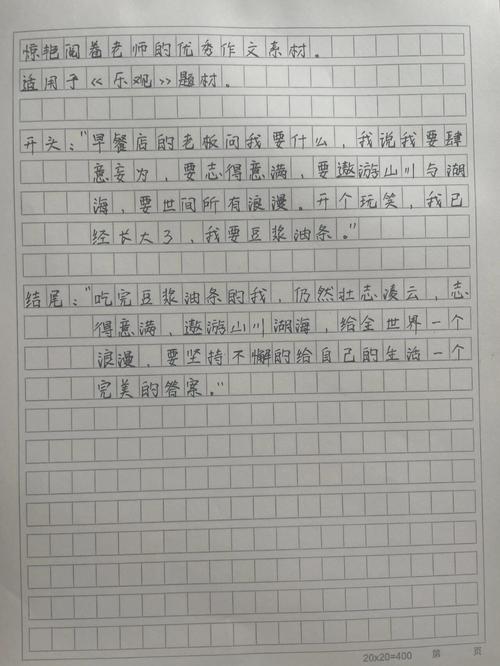 惊艳阅卷老师的优秀作文素材。
适用于《乐观》题材。
开头："早餐店的老板问我要什么，我说我要肆
意妄为，要志得意满，要遨游山川与湖
海，要世间所有浪漫。开个玩笑，我已
经长大了，我要豆浆油条。"
结尾："吃完豆浆油条的我，仍然壮志凌云，志
得意满，遨游山川湖海，给全世界一个
浪漫，要坚持不懈的给自己的生活一个
完美的答案。"
20x20=400 第 页